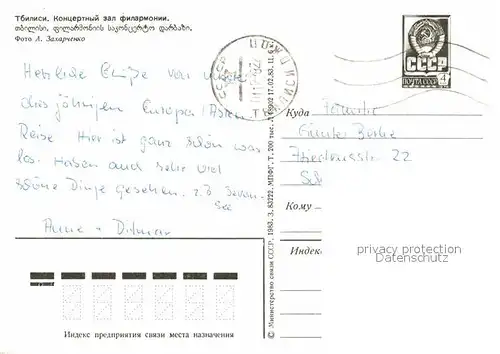 Тбилиси. Концертный зал филармонии.
თბილისი. ფილარმონიის საკონცერტო დარბაზი.
Фото Л. Захарченко
Herzliche Grüße von unserer
diesjährigen Europa/Asien
Reise. Hier ist ganz schön was
los. Haben auch sehr viel
schöne Dinge gesehen. z.B. Sevan-
See
Anne + Ditmar
СССР
ПОЧТА СССР
4
Куда Familie
Günter
22
Кому
Индекс
privacy protection
Datenschutz
Индекс предприятия связи места назначения
© Министерство связи СССР, 1983. З. 83222. МПФГ. Т. 200 тыс. 17.02.83.